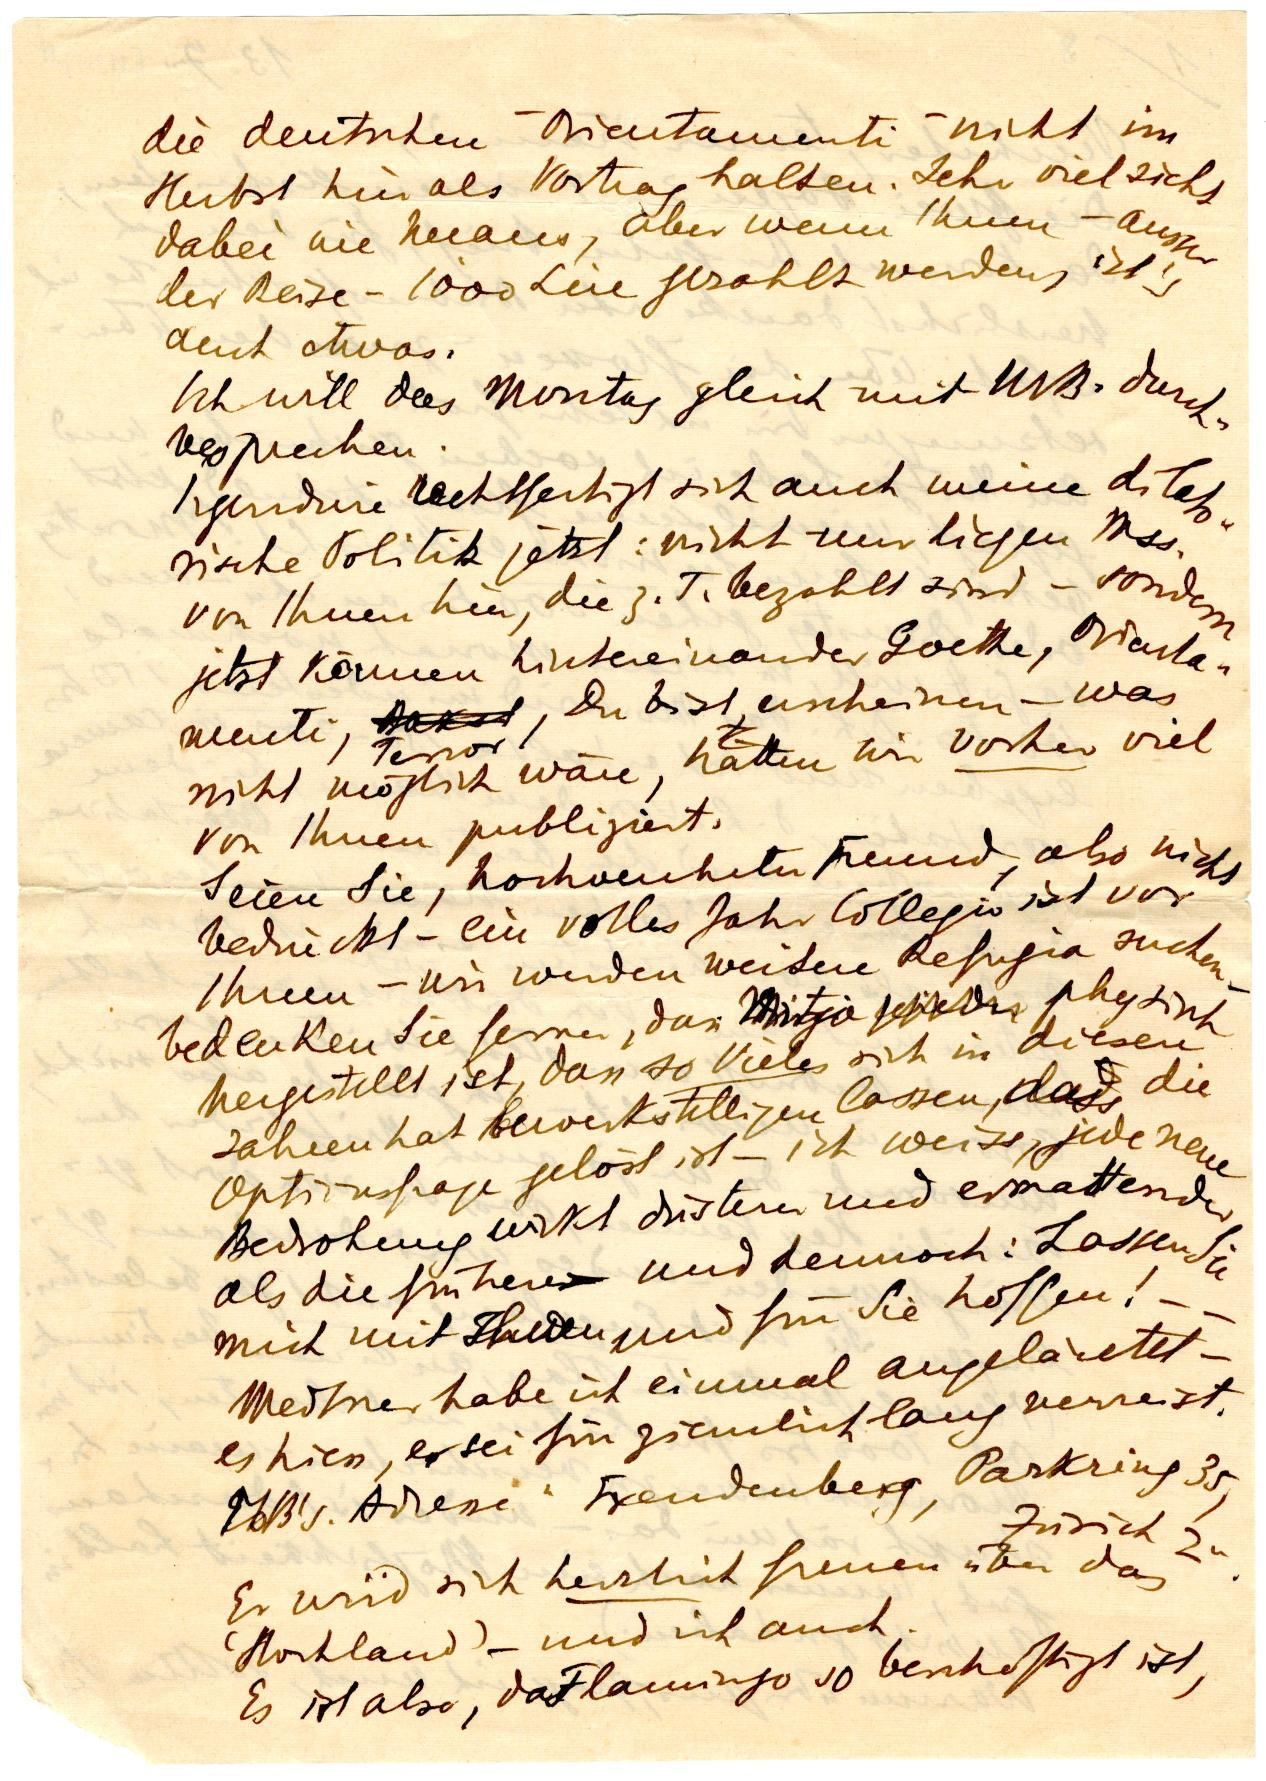 die deutschen "Orientamenti" nicht im
Herbst hier als Vortrag halten. Sehr viel zieht
dabei nie heraus, aber wenn Ihnen - ausser
der Reise - 1000 Lire gezahlt werden, ist's
doch etwas.
Ich will das Montag gleich mit durch-
besprechen.
Irgendwie rechtfertigt sich auch meine dilato-
rische Politik jetzt: nicht nur liegen Mss.
von Ihnen hier, die z. T. bezahlt sind - sondern
jetzt können hintereinander Goethe, Orienta-
menti, Terror, Du bist, erscheinen - was
nicht möglich wäre, hätten wir vorher viel
von Ihnen publiziert.
Seien Sie, hochverehrter Freund, also nicht
bedrückt - ein volles Jahr Collegio ist vor
Ihnen - wir werden weitere Refugia suchen -
bedenken Sie ferner, dass physisch
hergestellt ist, dass so Vieles sich in diesen
Jahren hat bewerkstelligen lassen, dass die
Optionsfrage gelöst ist - ich weiss, jede neue
Bedrohung wirkt düsterer und ermattender
als die früheren und dennoch: Lassen Sie
mich mit Ihnen und für Sie hoffen! - -
Medtner habe ich einmal angeläutet -
es hiess, er sei für ziemlich lang verreist.
Adresse: Freudenberg, Parkring 35,
Zürich 2.
Er wird sich herzlich freuen über das
"Hochland" - und ich auch.
Es ist also, da Flamingo so beschäftigt ist,